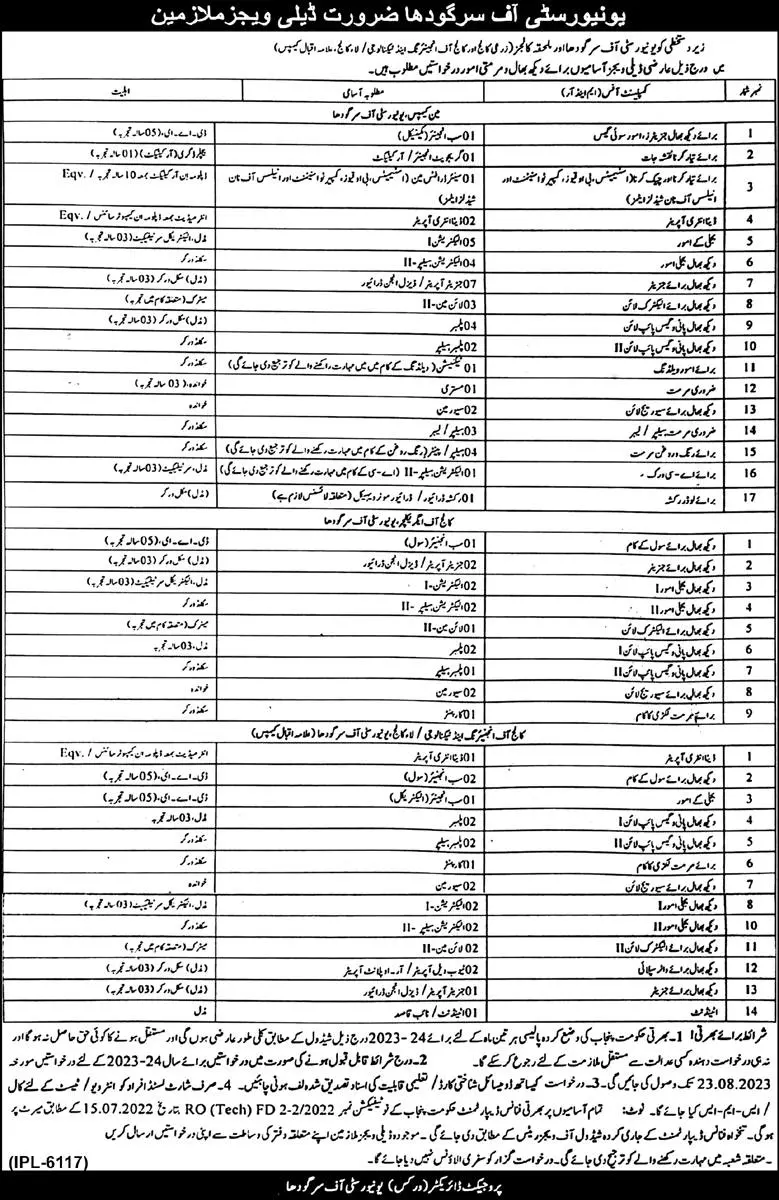 یونیورسٹی آف سرگودھا ضرورت ڈیلی ویجز ملازمین
زیر دستخطی کو یونیورسٹی آف سرگودھا اور ملحقہ کالجز (زرعی کالج اور کالج آف انجینئرنگ اینڈ ٹیکنالوجی / لاء کالج، علامہ اقبال کیمپس)
میں درج ذیل عارضی ڈیلی ویجز آسامیوں برائے دیکھ بھال و مرمتی امور درخواستیں مطلوب ہیں۔
نمبر شمار کمپلینٹ آفس (ایم اینڈ آر) مطلوبہ آسامی اہلیت
مین کیمپس، یونیورسٹی آف سرگودھا
1 برائے دیکھ بھال جنریٹرز، امور سوئی گیس 01 سب انجینئر (مکینیکل) ڈی۔اے۔ای، (05 سالہ تجربہ)
2 برائے تیار کرنا نقشہ جات 01 گریجویٹ انجینئر / آرکیٹیکٹ بیچلر ڈگری (آرکیٹیکٹ) (01 سالہ تجربہ)
3 برائے تیار کرنا اور چیک کرنا (اسٹیمیٹس، بی او قیوز، کمپیریٹو اسٹیٹمنٹ اور انیلسز آف نان شیڈولز آئیٹمز) 01 سینئر ڈرافٹس مین (اسٹیمیٹس، بی او قیوز، کمپیریٹو اسٹیٹمنٹ اور انیلسز آف نان شیڈولز آئیٹمز) ڈپلومہ ان آرکیٹیکٹ بمعہ 10 سالہ تجربہ / Eqv.
4 ڈیٹا انٹری آپریٹر 02 ڈیٹا انٹری آپریٹر انٹرمیڈیٹ بمعہ ڈپلومہ ان کمپیوٹر سائنس / Eqv.
5 بجلی کے امور 05 الیکٹریشن I مڈل، الیکٹریکل سرٹیفکیٹ (03 سالہ تجربہ)
6 دیکھ بھال بجلی امور 04 الیکٹریشن ہیلپر -II سکلڈ ورکر
7 دیکھ بھال برائے جنریٹر 07 جنریٹر آپریٹر / ڈیزل انجن ڈرائیور (مڈل) سکل ورکر (03 سالہ تجربہ)
8 دیکھ بھال برائے الیکٹرک لائن 03 لائن مین -II میٹرک (متعلقہ کام میں تجربہ)
9 دیکھ بھال پانی و گیس پائپ لائن 04 پلمبر (مڈل) سکل ورکر (03 سالہ تجربہ)
10 دیکھ بھال پانی و گیس پائپ لائن II 02 پلمبر ہیلپر سکلڈ ورکر
11 برائے امور ویلڈنگ 01 ٹیکنیشن (ویلڈنگ کے کام میں میں مہارت رکھنے والے کو ترجیح دی جائے گی) سکلڈ ورکر
12 ضروری مرمت 01 مستری خواندہ، (03 سالہ تجربہ)
13 دیکھ بھال برائے سیوریج لائن 02 سیورمین خواندہ
14 ضروری مرمت ہیلپر / لیبر 03 ہیلپر / لیبر سکلڈ ورکر
15 برائے رنگ و روغن مرمت 04 ہیلپر / پینٹر (رنگ روغن کے کام میں مہارت رکھنے والے کو ترجیح دی جائے گی) سکلڈ ورکر
16 برائے اے۔سی ورک۔ 01 الیکٹریشن ہیلپر -II (اے۔سی کے کام میں مہارت رکھنے والے کو ترجیح دی جائے گی) مڈل، سرٹیفکیٹ (03 سالہ تجربہ)
17 برائے لوڈر رکشہ 01 رکشہ ڈرائیور / ڈرائیور موٹر وہیکل (متعلقہ لائسنس لازم ہے) (مڈل) سکل ورکر
کالج آف ایگریکلچر، یونیورسٹی آف سرگودھا
1 دیکھ بھال برائے سول کے کام 01 سب انجینئر (سول) ڈی۔اے۔ای، (05 سالہ تجربہ)
2 دیکھ بھال برائے جنریٹر 02 جنریٹر آپریٹر / ڈیزل انجن ڈرائیور (مڈل) سکل ورکر (03 سالہ تجربہ)
3 دیکھ بھال بجلی امور I 02 الیکٹریشن -I مڈل، الیکٹریکل سرٹیفکیٹ (03 سالہ تجربہ)
4 دیکھ بھال بجلی امور II 02 الیکٹریشن ہیلپر -II سکلڈ ورکر
5 دیکھ بھال برائے الیکٹرک لائن 01 لائن مین -II میٹرک (متعلقہ کام میں تجربہ)
6 دیکھ بھال پانی و گیس پائپ لائن I 02 پلمبر مڈل، 03 سالہ تجربہ
7 دیکھ بھال پانی و گیس پائپ لائن II 01 پلمبر ہیلپر سکلڈ ورکر
8 دیکھ بھال برائے سیوریج لائن 02 سیورمین خواندہ
9 برائے مرمت لکڑی کا کام 01 کارپنٹر سکلڈ ورکر
کالج آف انجینئرنگ اینڈ ٹیکنالوجی / لاء کالج، یونیورسٹی آف سرگودھا (علامہ اقبال کیمپس)
1 ڈیٹا انٹری آپریٹر 01 ڈیٹا انٹری آپریٹر انٹرمیڈیٹ بمعہ ڈپلومہ ان کمپیوٹر سائنس / Eqv.
2 دیکھ بھال برائے سول کے کام 02 سب انجینئر (سول) ڈی۔اے۔ای، (05 سالہ تجربہ)
3 بجلی کے امور 01 سب انجینئر (الیکٹریکل) ڈی۔اے۔ای، (05 سالہ تجربہ)
4 دیکھ بھال پانی و گیس پائپ لائن I 02 پلمبر مڈل، 03 سالہ تجربہ
5 دیکھ بھال پانی و گیس پائپ لائن II 02 پلمبر ہیلپر سکلڈ ورکر
6 برائے مرمت لکڑی کا کام 01 کارپنٹر سکلڈ ورکر
7 دیکھ بھال برائے سیوریج لائن 02 سیورمین خواندہ
8 دیکھ بھال بجلی امور I 02 الیکٹریشن -I مڈل، الیکٹریکل سرٹیفکیٹ (03 سالہ تجربہ)
10 دیکھ بھال بجلی امور II 02 الیکٹریشن ہیلپر -II سکلڈ ورکر
11 دیکھ بھال برائے الیکٹرک لائن II 02 لائن مین -II میٹرک (متعلقہ کام میں تجربہ)
12 دیکھ بھال برائے واٹر سپلائی 02 ٹیوب ویل آپریٹر / آر۔او پلانٹ آپریٹر (مڈل) سکل ورکر (03 سالہ تجربہ)
13 دیکھ بھال برائے جنریٹر 01 جنریٹر آپریٹر / ڈیزل انجن ڈرائیور (مڈل) سکل ورکر (03 سالہ تجربہ)
14 اٹینڈنٹ 01 اٹینڈنٹ / نائب قاصد مڈل
شرائط برائے بھرتی! 1۔ بھرتی حکومت پنجاب کی وضع کردہ پالیسی ہر تین ماہ کے لئے برائے 24-2023 درج ذیل شیڈول کے مطابق کلی طور عارضی ہوں گی اور مستقل ہونے کا کوئی حق حاصل نہ ہوگا اور
نہ ہی درخواست دہندہ کسی عدالت سے مستقل ملازمت کے لئے رجوع کر سکے گا۔ 2۔ درج شرائط قابل قبول ہونے کی صورت میں درخواستیں برائے سال 24-2023 کے لئے درخواستیں مورخہ
23.08.2023 تک وصول کی جائیں گی۔ 3۔ درخواست کیساتھ ڈومیسائل شناختی کارڈ / تعلیمی قابلیت کی اسناد تصدیق شدہ لف ہونی چاہئیں۔ 4۔ صرف شارٹ لسٹڈ افراد کو انٹرویو / ٹیسٹ کے لئے کال
/ ایس۔ایم۔ایس کیا جائے گا۔ نوٹ: تمام آسامیوں پر بھرتی فنانس ڈیپارٹمنٹ حکومت پنجاب کے نوٹیفکیشن نمبر RO (Tech) FD 2-2/2022 بتاریخ 15.07.2022 کے مطابق میرٹ پر
ہوگی۔ تنخواہ فنانس ڈیپارٹمنٹ کے جاری کردہ شیڈول آف ویجز ریٹس کے مطابق دی جائے گی۔ موجودہ ڈیلی ویجز ملازمین اپنے متعلقہ دفتر کی وساطت سے اپنی درخواستیں ارسال کریں
۔ متعلقہ شعبہ میں مہارت رکھنے والے کو ترجیح دی جائے گی۔ درخواست گزار کو سفری الاؤنس نہیں دیا جائے گا۔
(IPL-6117)
پروجیکٹ ڈائریکٹر (ورکس) یونیورسٹی آف سرگودھا